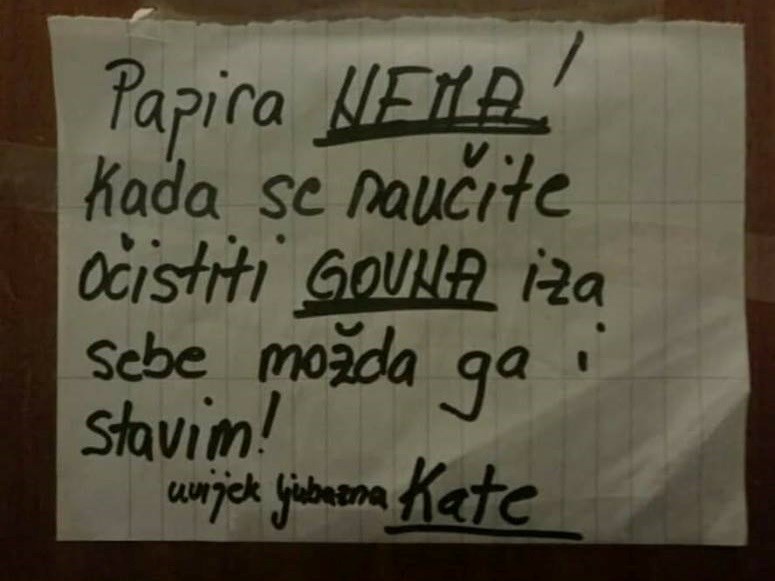 Papira NEMA!
Kada se naučite
očistiti GOVNA iza
sebe možda ga i
stavim!
uvijek ljubazna Kate